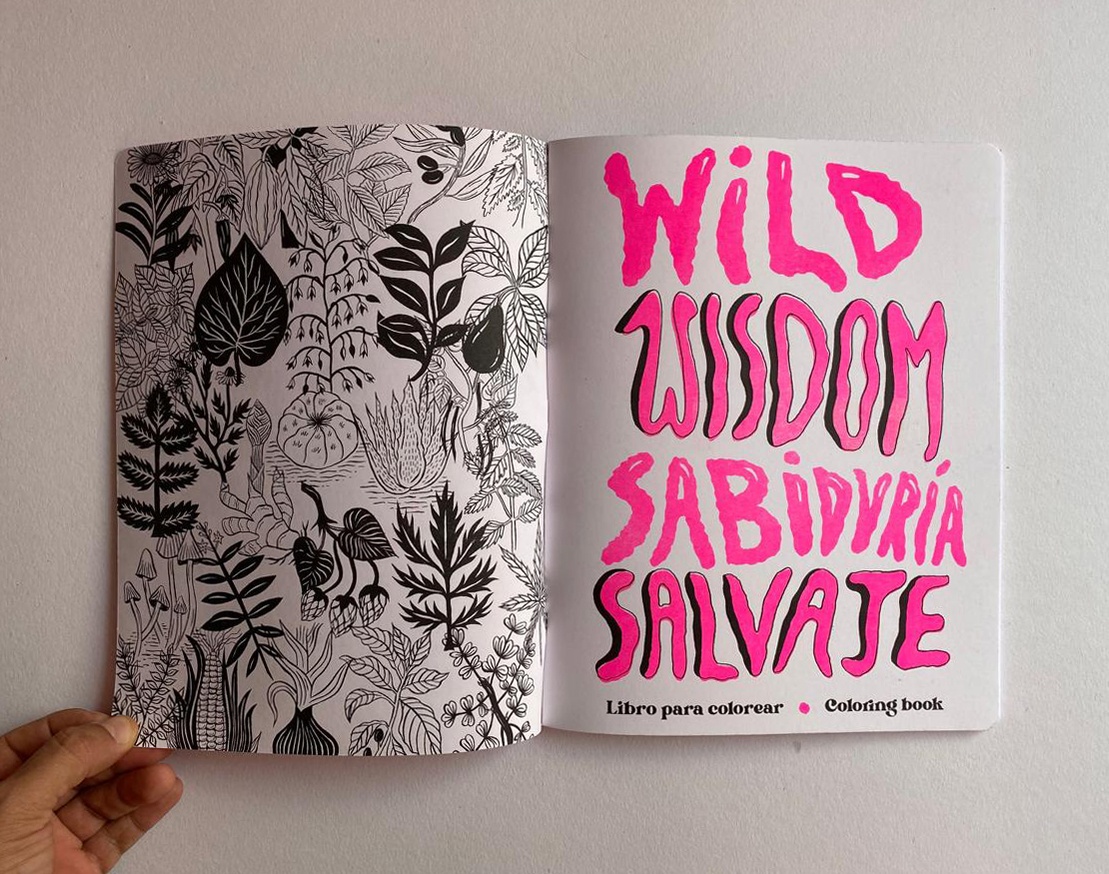 WiLD
WISDOM
SABiDURÍA
SALVAJE
Libro para colorear • Coloring book